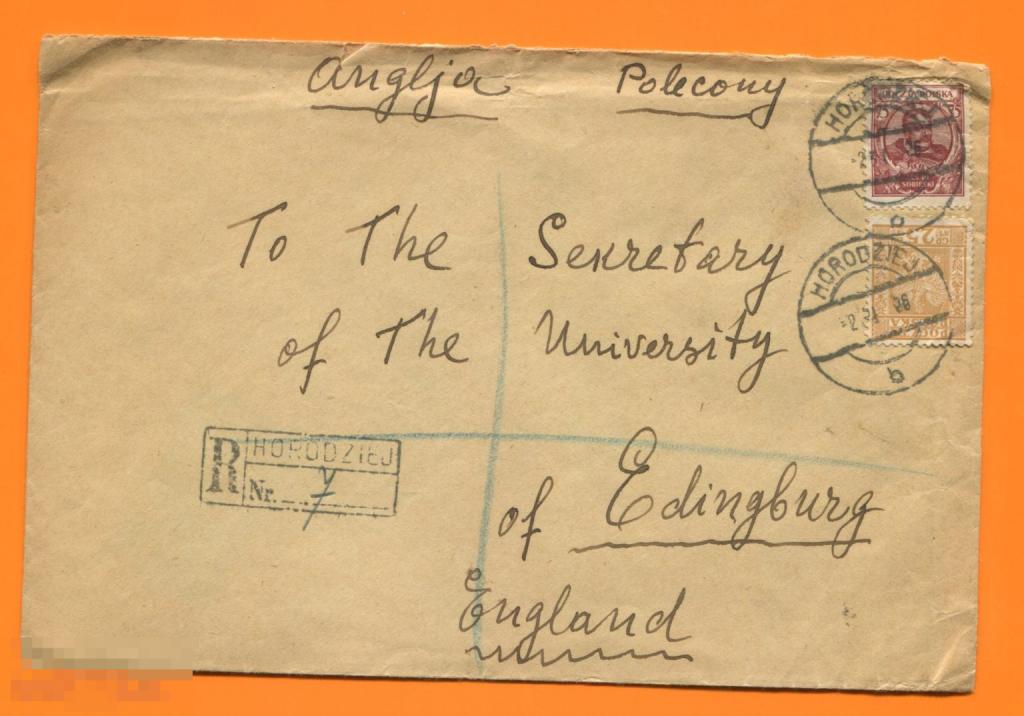 Anglja Polecony
To The Sekretary
of The University
of Edingburg
England
R HORODZIEJ
Nr. 7
HORODZIEJ
b
25
SOBIESKI